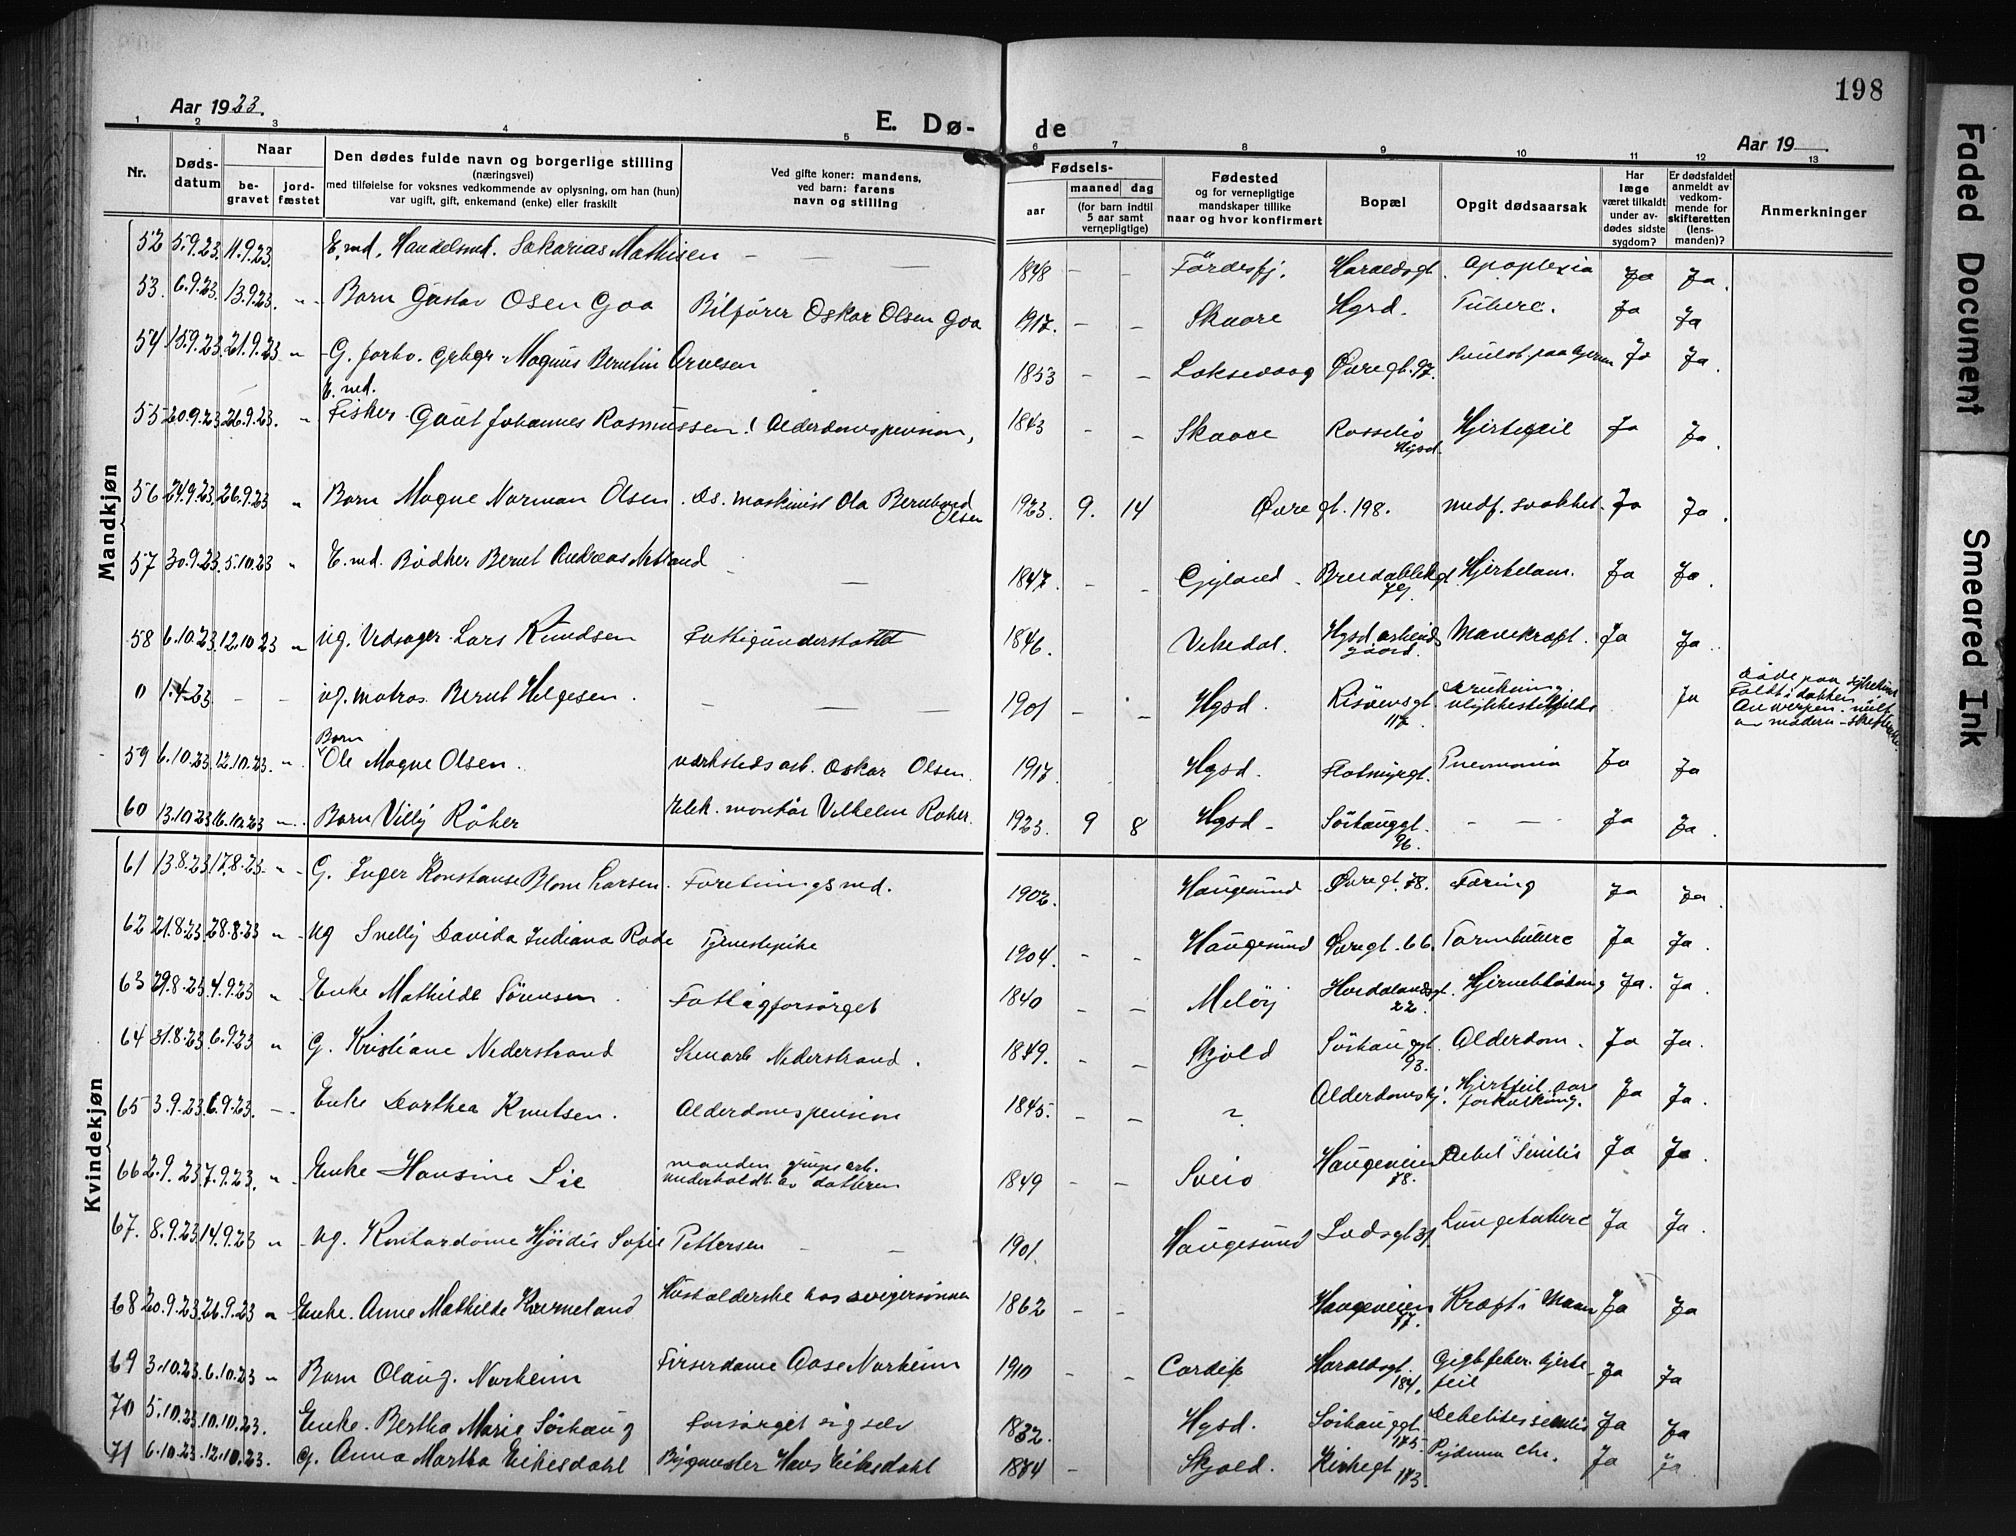 198
Aar 1923.
E. Dø-
de
Aar 19
Faded Document
Smeared Ink
1 2 3 4 5 6 7 8 9 10 11 12 13
Nr.
Døds-
datum
Naar
be-
gravet
jord-
fæstet
Den dødes fulde navn og borgerlige stilling
(næringsvei)
med tilføielse for voksnes vedkommende av oplysning, om han (hun)
var ugift, gift, enkemand (enke) eller fraskilt
Ved gifte koner: mandens,
ved barn: farens
navn og stilling
Fødsels-
aar
maaned
dag
(for barn indtil
5 aar samt
vernepligtige)
Fødested
og for vernepligtige
mandskaper tillike
naar og hvor konfirmert
Bopæl
Opgit dødsaarsak
Har
læge
været tilkaldt
under av-
dødes sidste
sygdom?
Er dødsfaldet
anmeldt av
vedkom-
mende for
skifteretten
(lens-
manden)?
Anmerkninger
Mandkjøn
52 5.9.23 11.9.23 E.md. Handelsmd. Sakarias Mathisen - - 1848 - - Førdesfj. Haraldsgt. Apoplexia Ja Ja.
53. 6.9.23. 13.9.23. " Barn Gustav Osen Goa Bilfører Oskar Olsen Goa 1917. - - Skaare Hgsd. Tuberc. Ja Ja
54 15.9.23 21.9.23 " G. forhv. Magnus Berntin 1853 - - Øvregt. 97. Svulst paa Ja Ja.
E.md.
55 20.9.23 26.9.23. " Fisker Gaut Johannes Rasmussen. Alderdomspension, 1843 - - Skaare Hgsd. Hjertefeil Ja Ja.
56 24.9.23. 26.9.23 " Barn Magne Norman Olsen. Ds. maskinist Ola Bernhard Olsen 1923. 9. 14 Øvregt. 198. medf. svakhet. Ja Ja.
57 30.9.23. 5.10.23 " E.md. Bødker Bernt Andreas Netland - - 1847. - - Gyland Breidablikgt. 79. Hjertelam. Ja Ja.
58 6.10.23 12.10.23 " ug. Vedsager Lars Knudsen Fattigunderstøttet 1846. - - Vikedal. Hgsd. arbeids gaard. Mavekræft. Ja Ja.
0 1.4.23 - - ug. matros. Bernt Helgesen. - - 1901 - - Hgsd. Risøensgt. 117. Drukning ulykkestilfælde Ja
Barn
59 6.10.23. 12.10.23. " Ole Magne Olsen. værkstedsarb. Oskar Olsen. 1917 Hgsd. Flotmyrgt. Pneumonia Ja Ja
60 13.10.23 16.10.23 " Barn Villy Røker Elek. montør Vilhelm Røker. 1923. 9 8 Hgsd - Sørhauggt. 96. - - Ja Ja.
Kvindekjøn
61 13.8.23 17.8.23. " G. Inger Konstanse Blom Larsen. Forretningsmd. 1902. Haugesund Øvregt. 78. Tæring Ja Ja.
62 21.8.23 28.8.23 " ug Snelly Davida Indiana Rode Tjenestepike 1904. - - Haugesund Øvregt. 66. Tarmtuberc Ja Ja.
63 29.8.23. 4.9.23 " Enke Mathilde Sørensen. Fattigforsørget 1840 - - Meløy Hordalandsgt. 22. Hjerneblødning Ja. Ja.
64 31.8.23 6.9.23 " G. Kristiane Nederstrand Stenarb Nederstrand. 1849. - Skjold Sørhauggt. 93. Alderdom. Ja Ja.
65 3.9.23 6.9.23. - Enke Dorthea Knutsen. Alderdomspension 1845. - - " Alderdomshj. Hjertefeil aare forkalkning. Ja Ja.
66 2.9.23 7.9.23. " Enke Hansine Lie manden grupsarb. underholdt av datteren 1849 - - Sveio Haugeveien 78. Debil Senilis Ja Ja.
67. 8.9.23 14.9.23 " ug. Kontordame Hjørdis Sofie Pettersen - - 1901. Haugesund Lodsgt. 31. Lungetuberc Ja Ja.
68 20.9.23 26.9.23 " Enke. Anne Mathilde Karmeland Husholderske hos svigersønnen 1862 - - Haugeveien 77. Kræft i Maven Ja Ja
69 3.10.23 6.10.23 " Barn Olaug. Norheim Frisørdame Aase Norheim 1910 - - Cardiff Haraldsgt. 184. Gigtfeber. hjertefeil Ja Ja
70 5.10.23 10.10.23. Enke. Bertha Marie Sørhaug Forsørget sig selv 1832. Hgsd. Sørhauggt. 175. Debilitas senilis Ja Ja
71 6.10.23 12.10.23. G. Anna Martha Eikesdahl Bygmester Hans Eikesdahl 1874 - Skjold. Kirkegt 173 Ja Ja